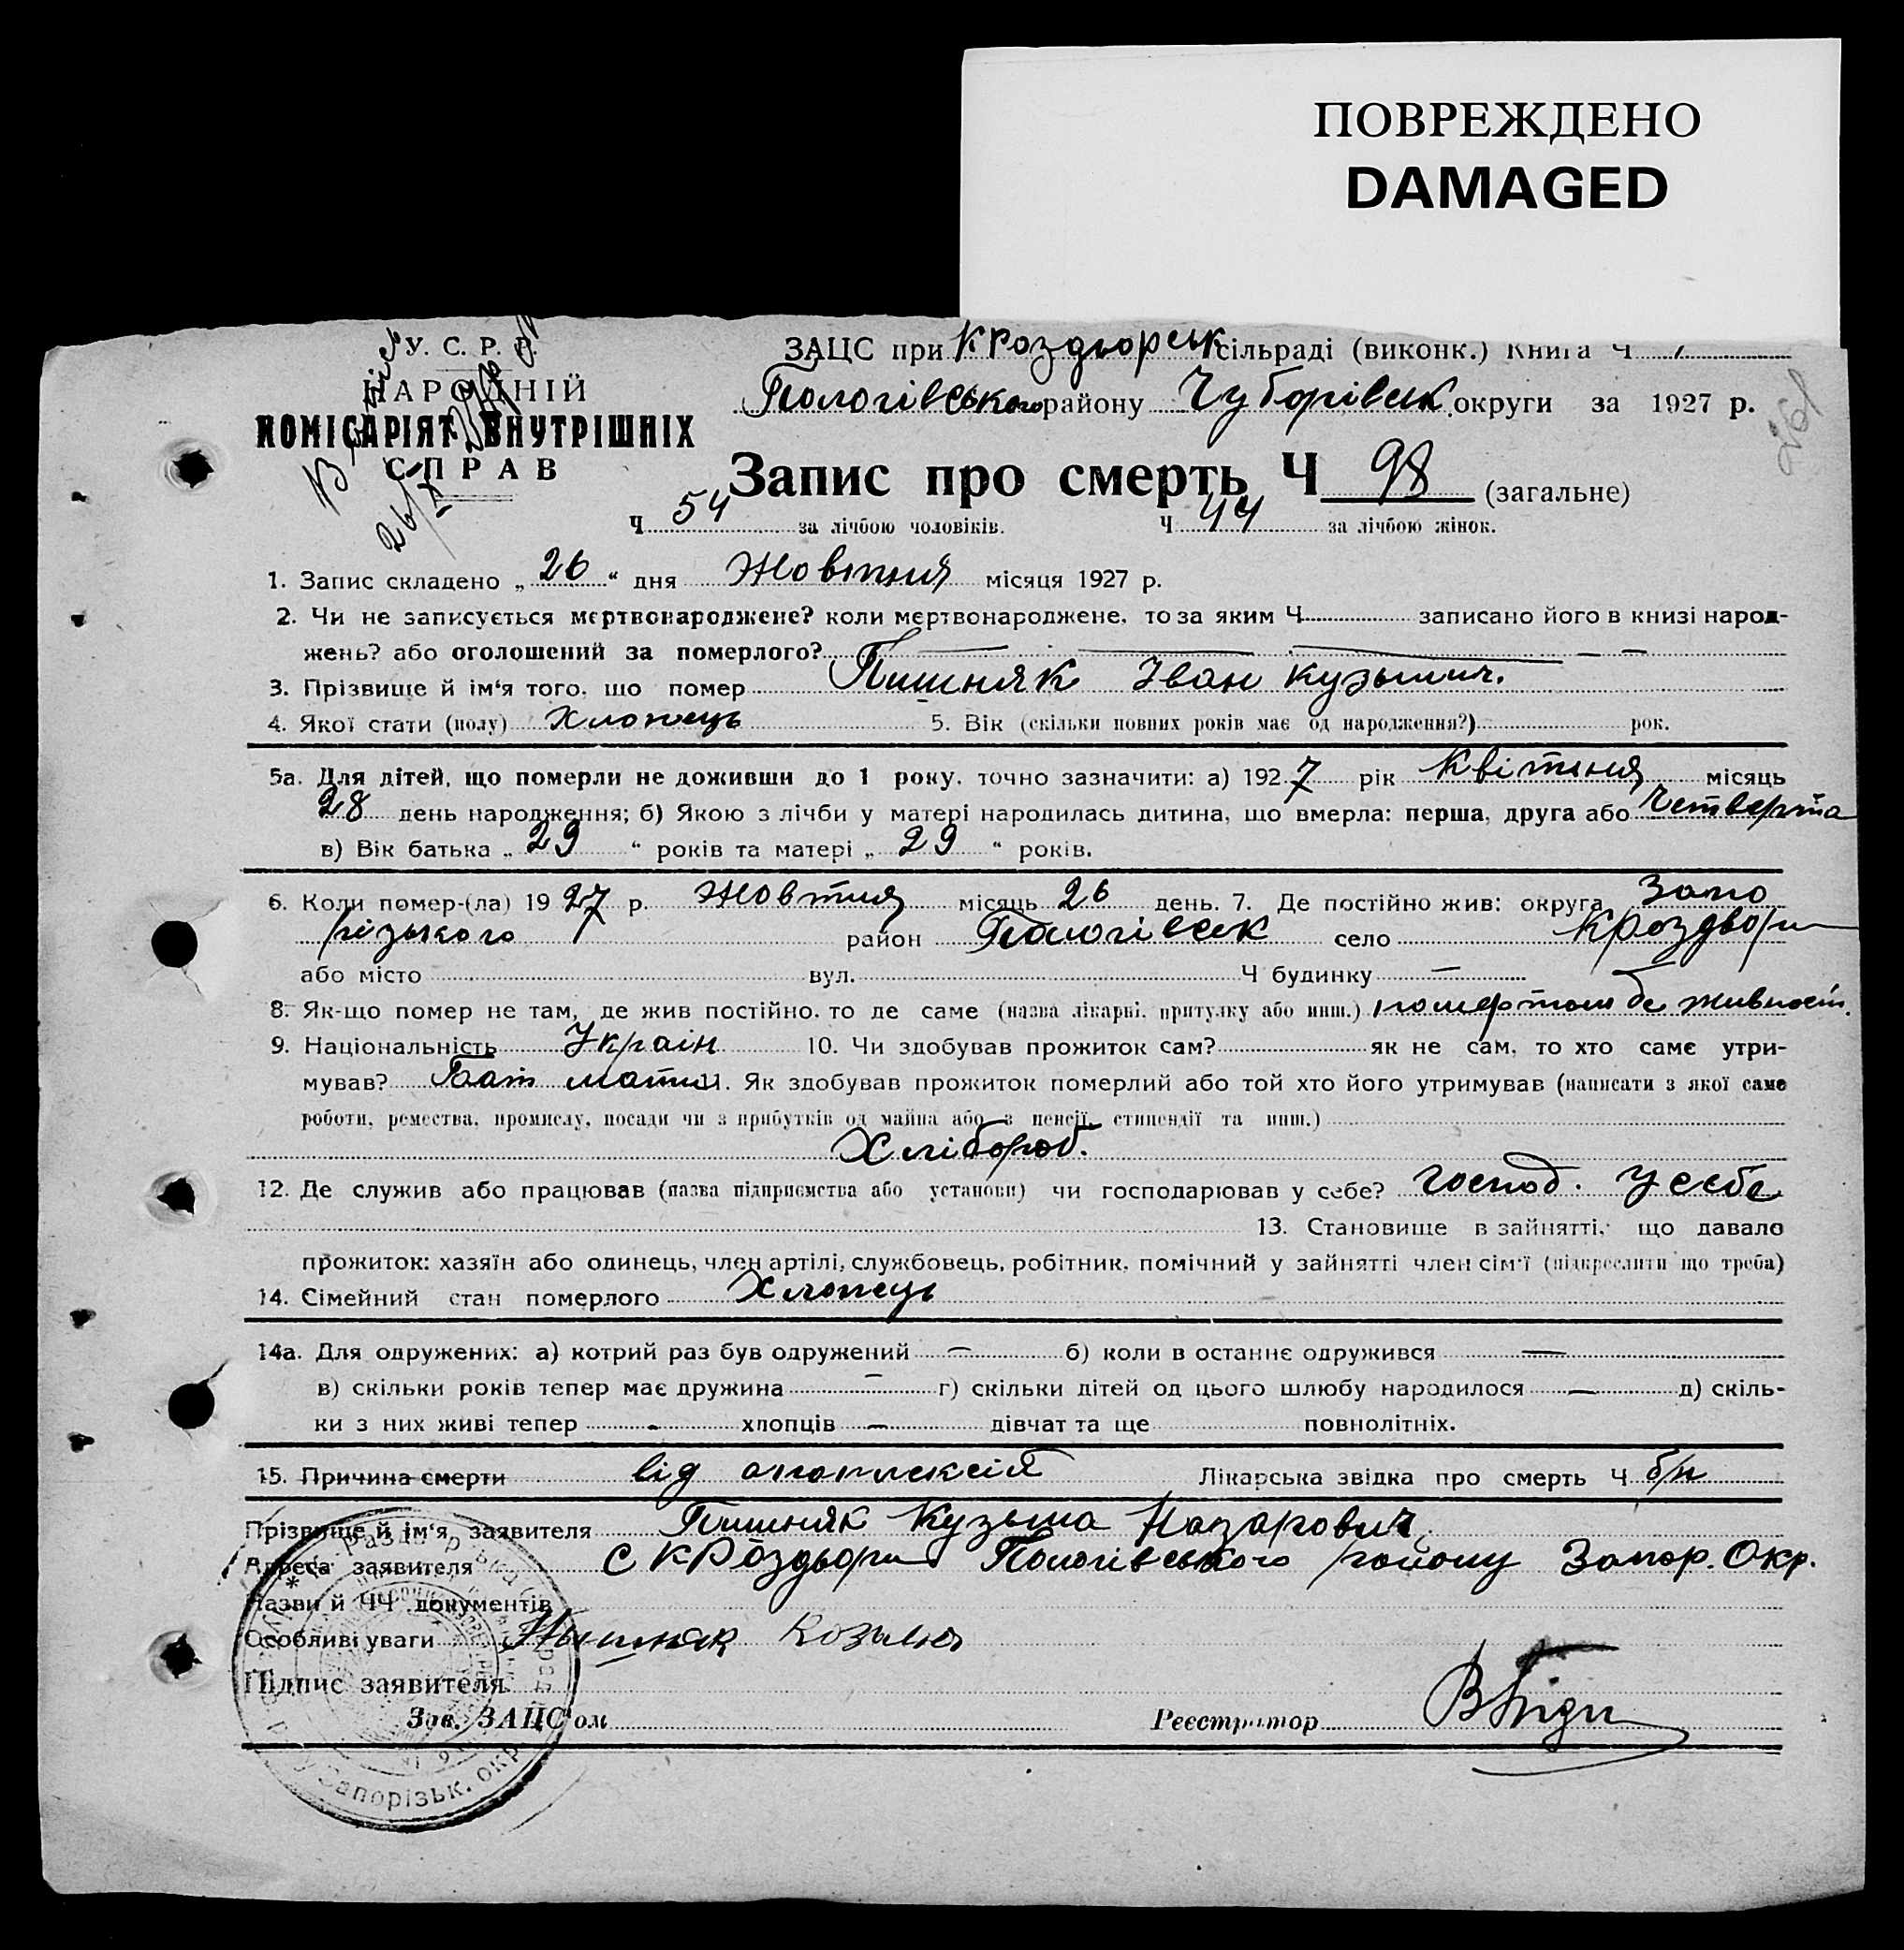 ПОВРЕЖДЕНО
DAMAGED
У. С. Р. Р.
НАРОДНІЙ
КОМІСАРІЯТ ВНУТРІШНІХ
СПРАВ
ЗАЦС при К Роздорськ сільраді (виконк.) Книга Ч
Пологівського району Чубарівськ округи за 1927 р.
Запис про смерть Ч 98 (загальне)
Ч 54 за лічбою чоловіків. Ч 44 за лічбою жінок.
1. Запис складено „ 26 “ дня Жовтня місяця 1927 р.
2. Чи не записується мертвонароджене? коли мертвонароджене, то за яким Ч записано його в книзі народ-
жень? або оголошений за померлого?
3. Прізвище й ім'я того, що помер Пишняк Іван Кузьмич.
4. Якої стати (полу) Хлопець 5. Вік (скільки повних років має од народження?) рок.
5а. Для дітей, що померли не доживши до 1 року, точно зазначити: а) 1927 рік Квітня місяць
28 день народження; б) Якою з лічби у матері народилась дитина, що вмерла: перша, друга або Четверта
в) Вік батька „ 29 “ років та матері „ 29 “ років.
6. Коли помер-(ла) 1927 р. Жовтня місяць 26 день. 7. Де постійно жив: округа Запо
різького район Пологівськ село К Роздори
або місто вул. Ч будинку —
8. Як-що помер не там, де жив постійно, то де саме (назва лікарні, притулку або инш.) помер там де
9. Національність Україн 10. Чи здобував прожиток сам? як не сам, то хто саме утри-
мував? Бат мати 11. Як здобував прожиток померлий або той хто його утримував (написати з якої саме
роботи, ремества, промислу, посади чи з прибутків од майна або з пенсії, стипендії та инш.)
Хлібороб.
12. Де служив або працював (назва підприємства або установи) чи господарював у себе? господ. у себе
13. Становище в зайнятті, що давало
прожиток: хазяїн або одинець, член артілі, службовець, робітник, помічний у зайнятті член сім'ї (підкреслити що треба)
14. Сімейний стан померлого Хлопець
14а. Для одружених: а) котрий раз був одружений — б) коли в останнє одружився —
в) скільки років тепер має дружина — г) скільки дітей од цього шлюбу народилося — д) скіль-
ки з них живі тепер - хлопців — дівчат та ще повнолітніх.
15. Причина смерти від апоплексії Лікарська звідка про смерть Ч б/н
Прізвище й ім'я заявителя Пишняк Кузьма Назарович
Адреса заявителя С К Роздори Пологівського району Запор. Окр.
Назви й ЧЧ документів
Особливі уваги Пышняк Козьма
Підпис заявителя
Зав. ЗАЦС'ом Реєстратор
Запорізьк. окр.